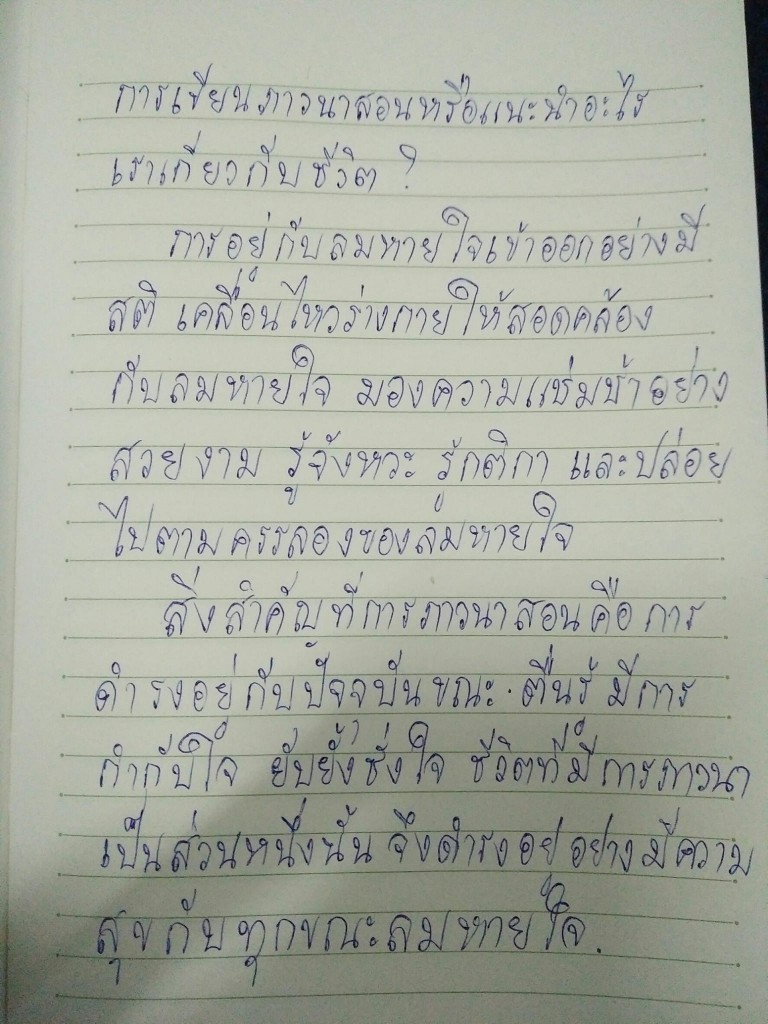 การเขียนภาวนาสอนหรือแนะนำอะไร
เราเกี่ยวกับชีวิต ?
การอยู่กับลมหายใจเข้าออกอย่างมี
สติ เคลื่อนไหวร่างกายให้สอดคล้อง
กับลมหายใจ มองความแช่มช้าอย่าง
สวยงาม รู้จังหวะ รู้กติกา และปล่อย
ไปตามครรลองของลมหายใจ
สิ่งสำคัญที่การภาวนาสอนคือ การ
ดำรงอยู่กับปัจจุบันขณะ. ตื่นรู้ มีการ
กำกับใจ ยับยั้งชั่งใจ ชีวิตที่มีการภาวนา
เป็นส่วนหนึ่งนั้น จึงดำรงอยู่อย่างมีความ
สุขกับทุกขณะลมหายใจ.